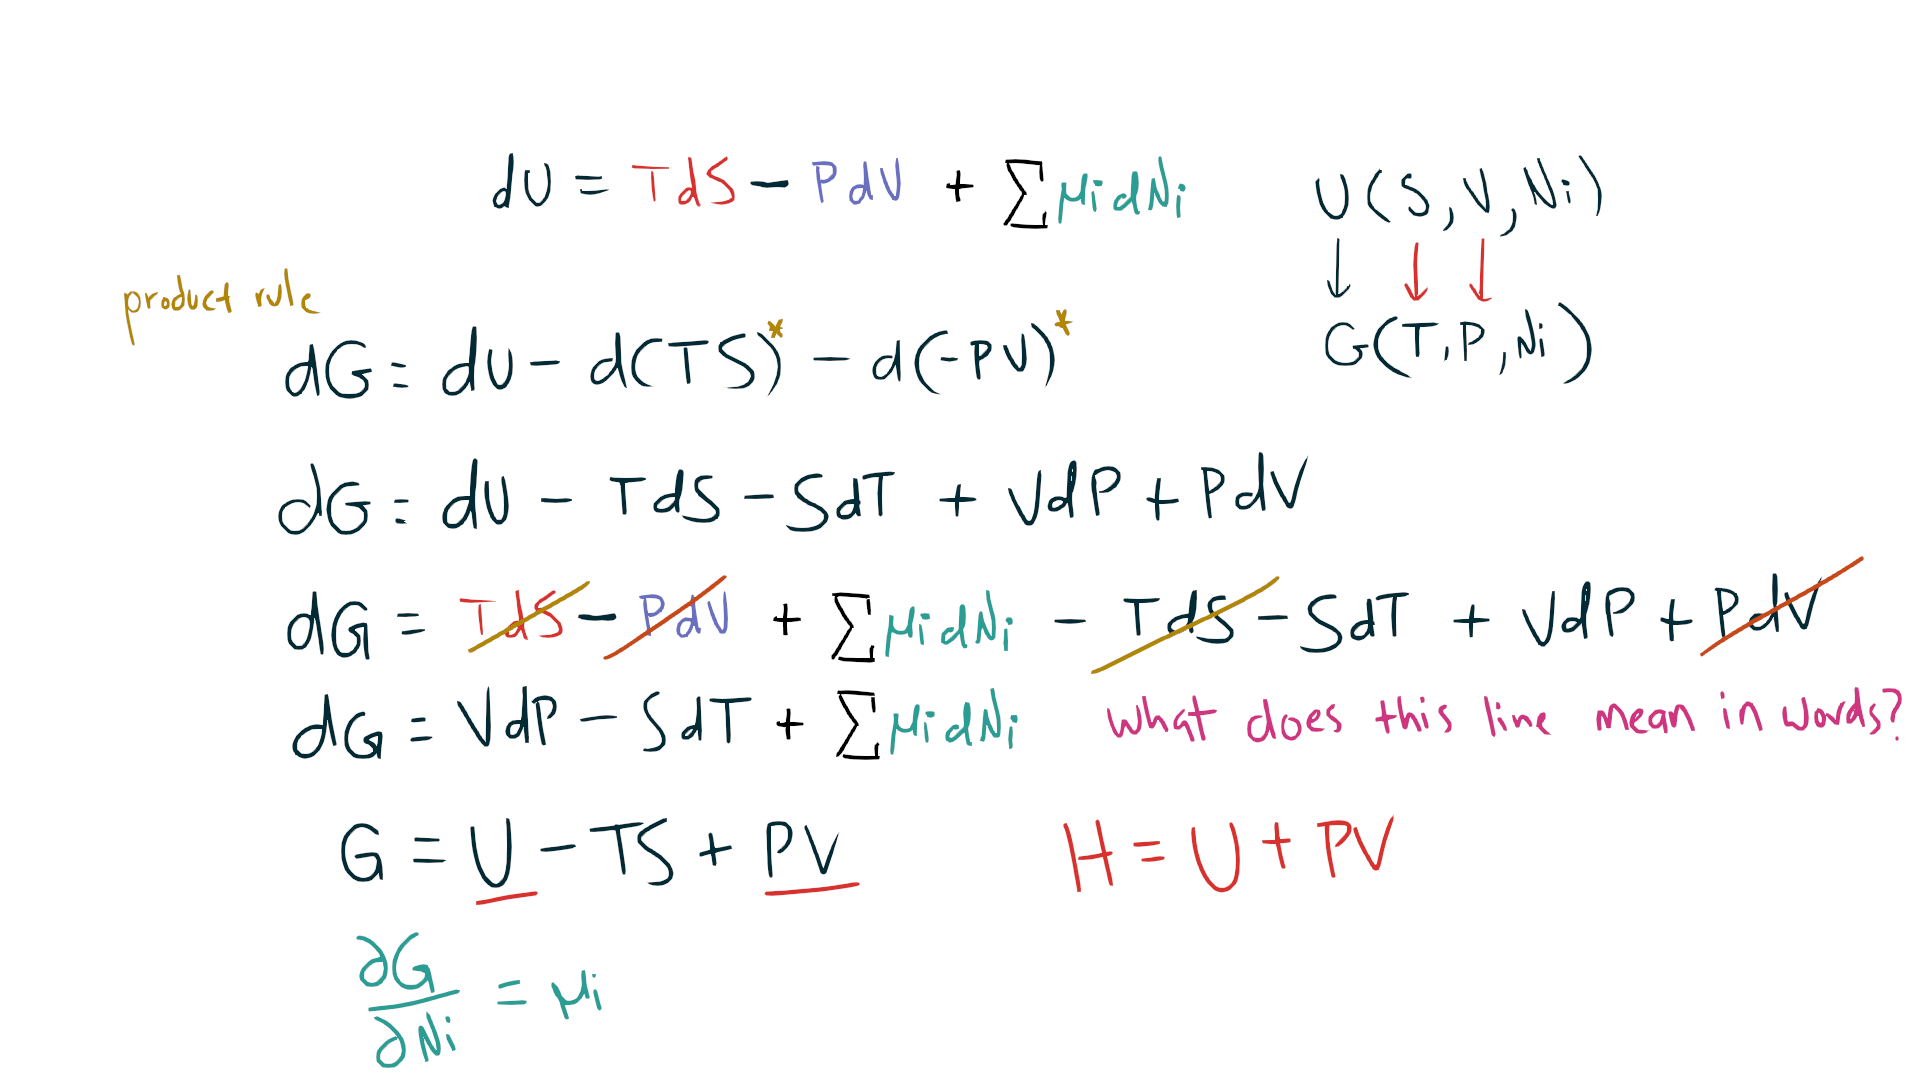 dU = TdS - PdV + ∑μidNi
U(S,V,Ni)
↓ ↓ ↓
product rule
dG = dU - d(TS)* - d(-PV)*
G(T,P,Ni)
dG = dU - TdS - SdT + VdP + PdV
dG = TdS - PdV + ∑μidNi - TdS - SdT + VdP + PdV
dG = VdP - SdT + ∑μidNi what does this line mean in words?
G = U - TS + PV H = U + PV
∂G/∂Ni = μi